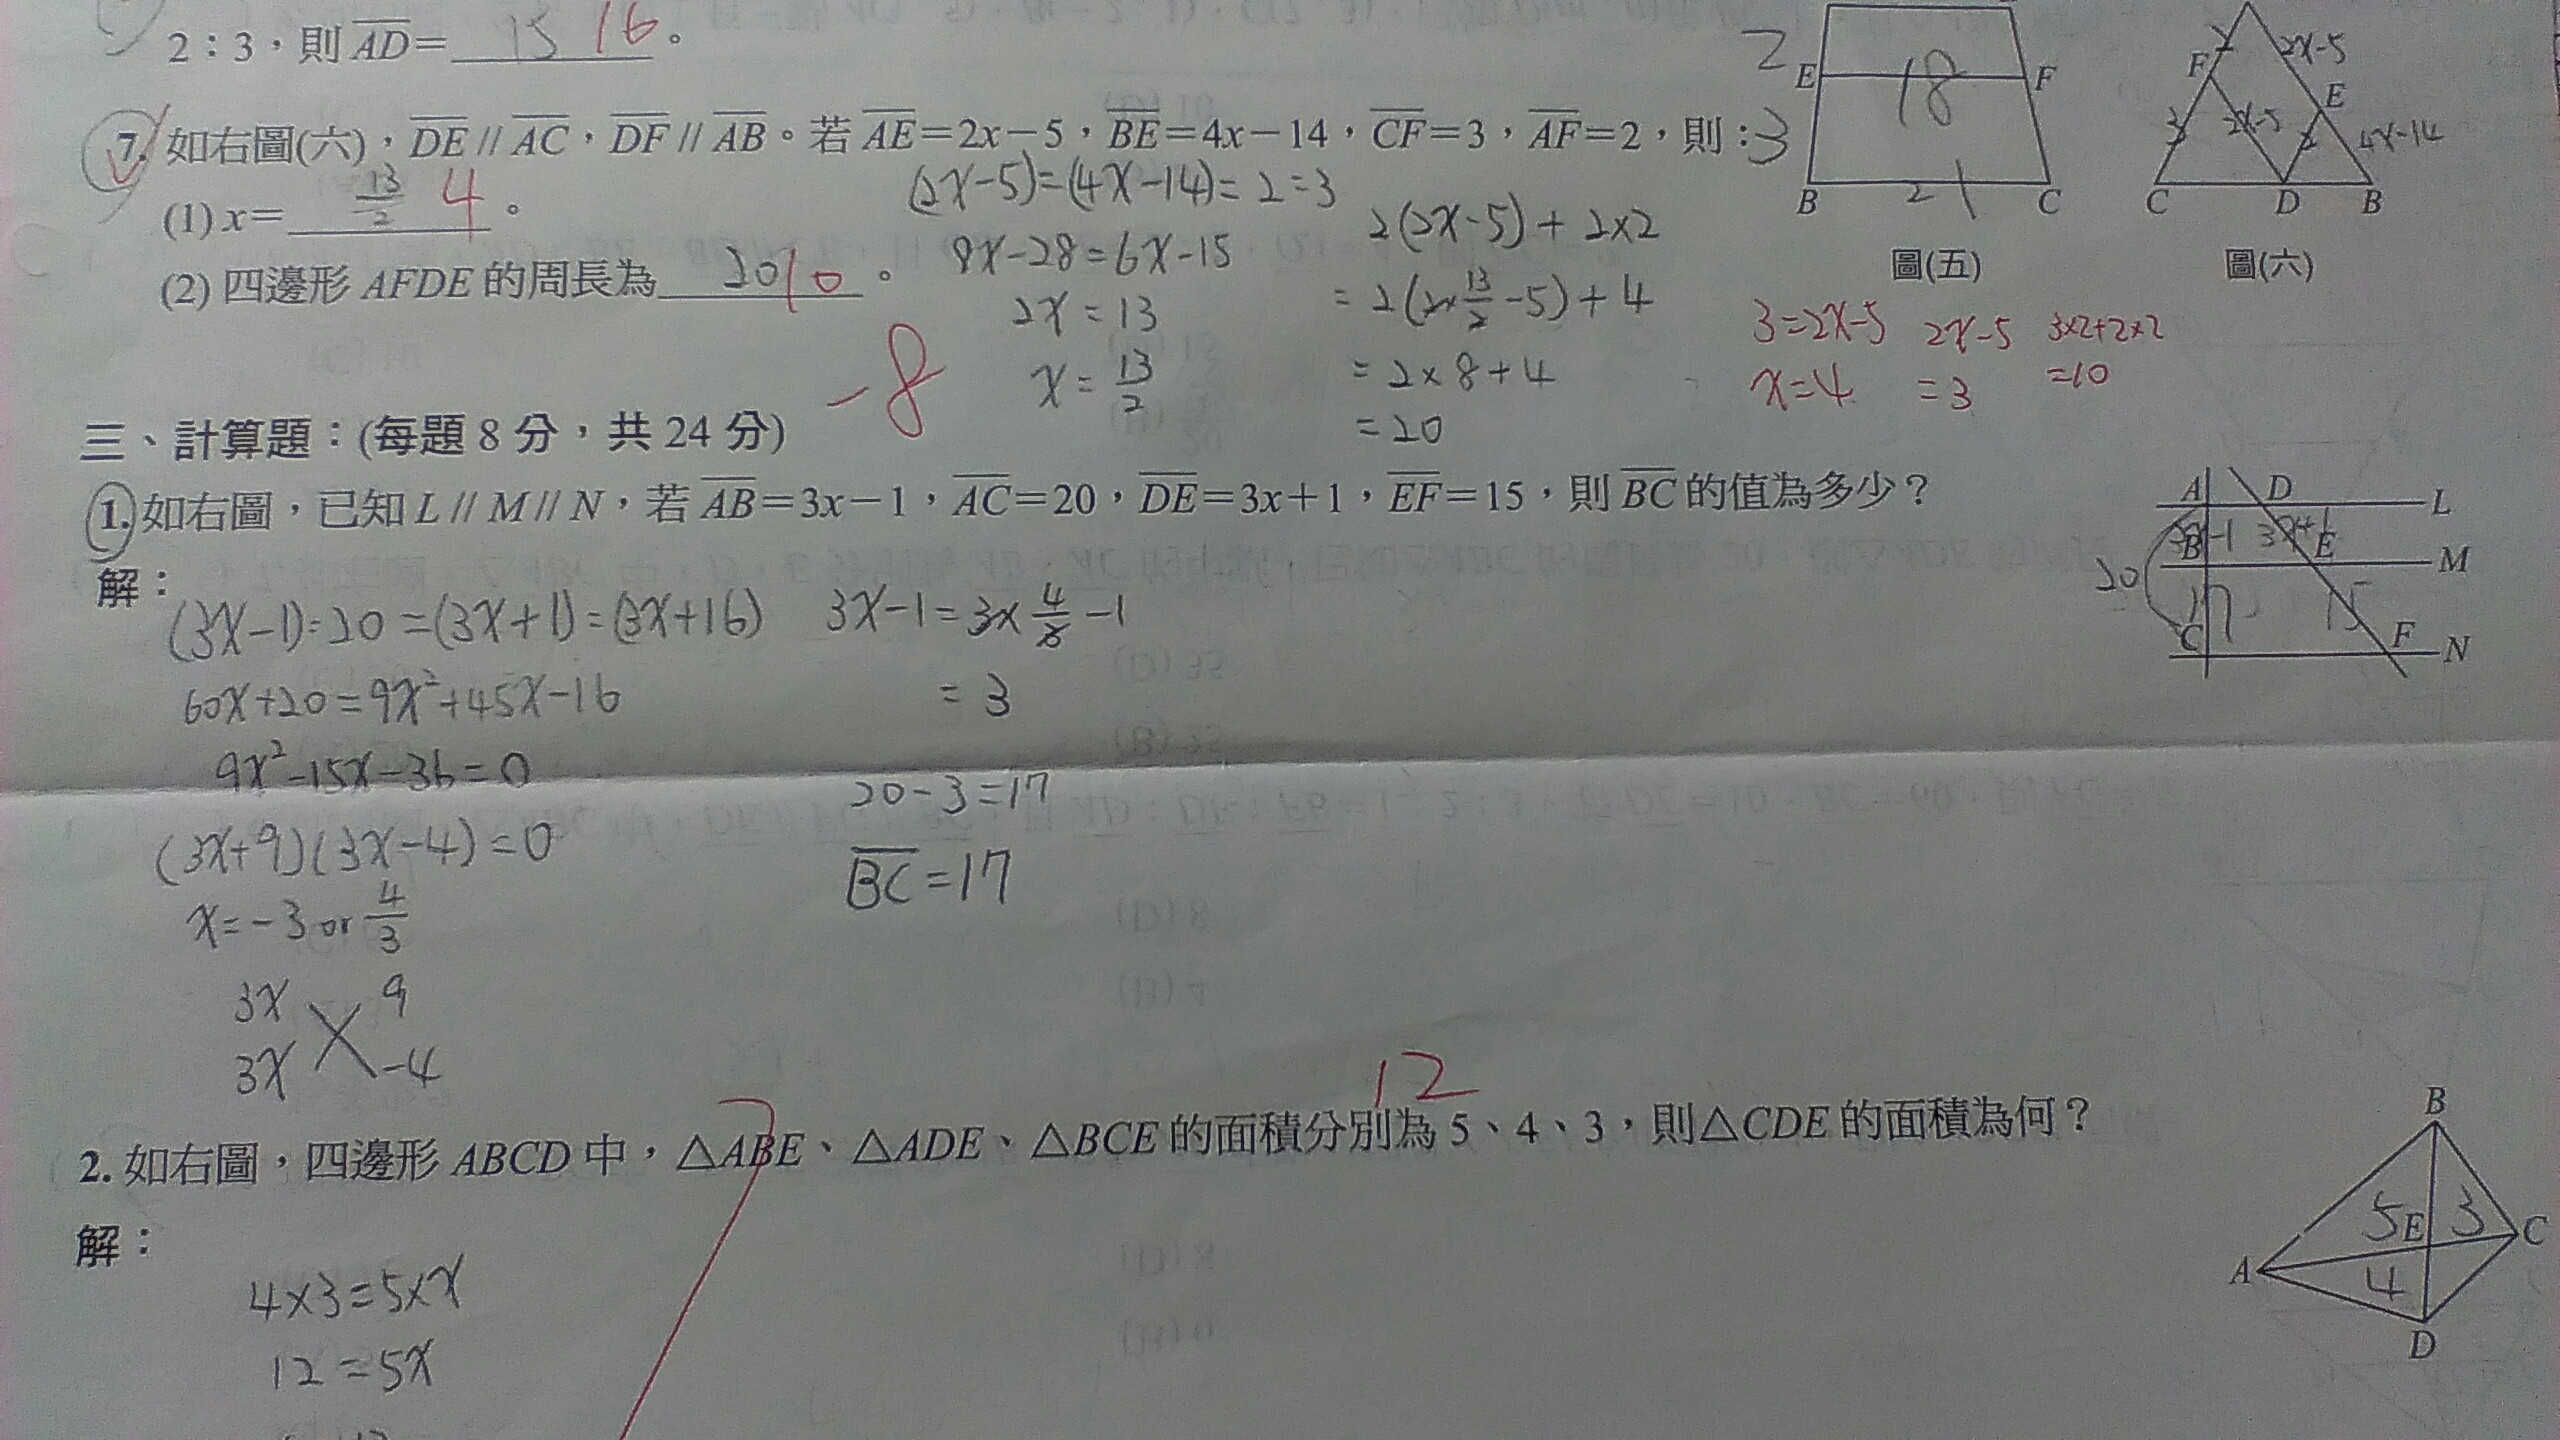 2：3，則AD=15 16。
7. 如右圖(六)，DE // AC，DF // AB。若AE=2x-5，BE=4x-14，CF=3，AF=2，則：
(1) x=13/2 4。
(2) 四邊形 AFDE 的周長為 20 10。
(2x-5)=(4x-14)=2=3
8x-28=6x-15
2x=13
x=13/2
2(2x-5)+2×2
=2(2×13/2-5)+4
=2×8+4
=20
-8
2
E
18
F
3
B
2
C
圖(五)
2
F
2x-5
E
3
2x-5
2
4x-14
C
D
B
圖(六)
3=2x-5
x=4
2x-5
=3
3×2+2×2
=10
三、計算題：(每題 8 分，共 24 分)
1. 如右圖，已知 L // M // N，若 AB=3x-1，AC=20，DE=3x+1，EF=15，則 BC 的值為多少？
A D L
3x-1 3x+1
B E M
20
17 15
C F N
解：
(3x-1)=20=(3x+1)=(3x+16)
60x+20=9x²+45x-16
9x²-15x-36=0
(3x+9)(3x-4)=0
x=-3 or 4/3
3x 9
3x -4
3x-1=3×4/3-1
=3
20-3=17
BC=17
7
12
2. 如右圖，四邊形 ABCD 中，△ABE、△ADE、△BCE 的面積分別為 5、4、3，則△CDE 的面積為何？
解：
4×3=5×x
12=5x
B
5 E 3 C
A
4
D